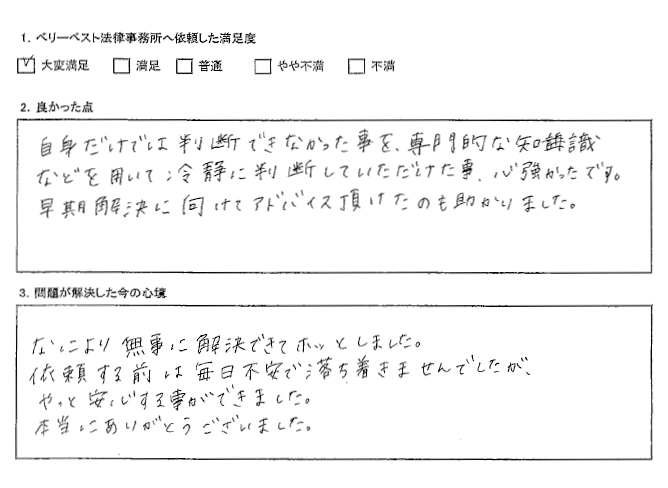 1. ベリーベスト法律事務所へ依頼した満足度
☑ 大変満足 □ 満足 □ 普通 □ やや不満 □ 不満
2. 良かった点
自身だけでは判断できなかった事を、専門的な知識
などを用いて冷静に判断していただけた事、心強かったです。
早期解決に向けてアドバイス頂けたのも助かりました。
3. 問題が解決した今の心境
なにより無事に解決できてホッとしました。
依頼する前は毎日不安で落ち着きませんでしたが、
やっと安心する事ができました。
本当にありがとうございました。